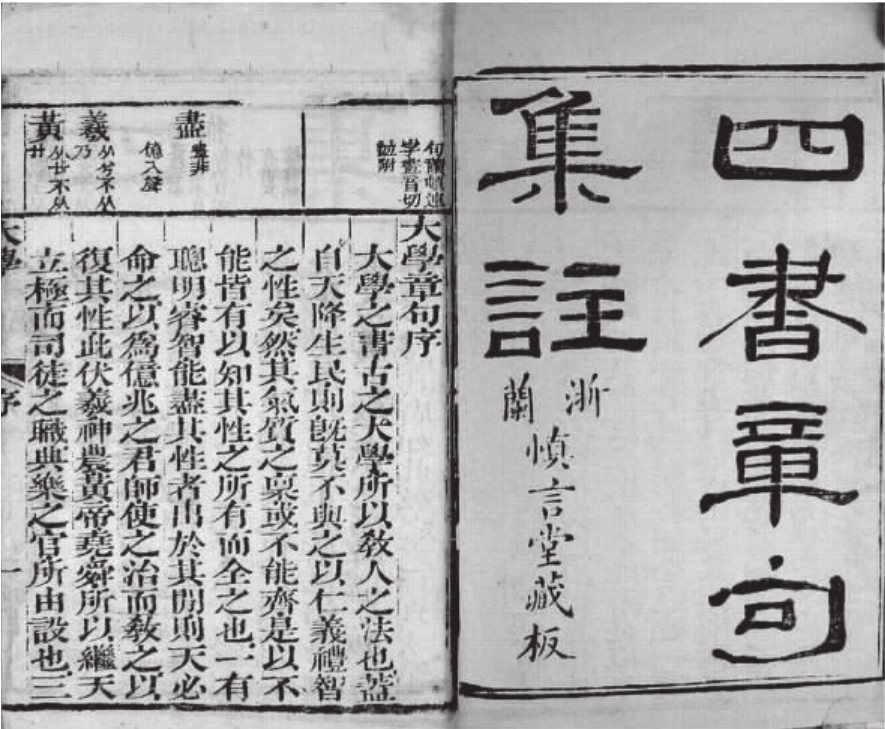 四書章句
集註
浙
蘭
慎言堂藏板
字畫音切
大學章句序
大學之書古之大學所以敎人之法也蓋
自天降生民則旣莫不與之以仁義禮智
之性矣然其氣質之稟或不能齊是以不
能皆有以知其性之所有而全之也一有
聰明睿智能盡其性者出於其閒則天必
命之以爲億兆之君師使之治而敎之以
復其性此伏羲神農黃帝堯舜所以繼天
立極而司徒之職典樂之官所由設也三
盡
億入聲
羲
从兮不从
乃
黃
大學
序
一